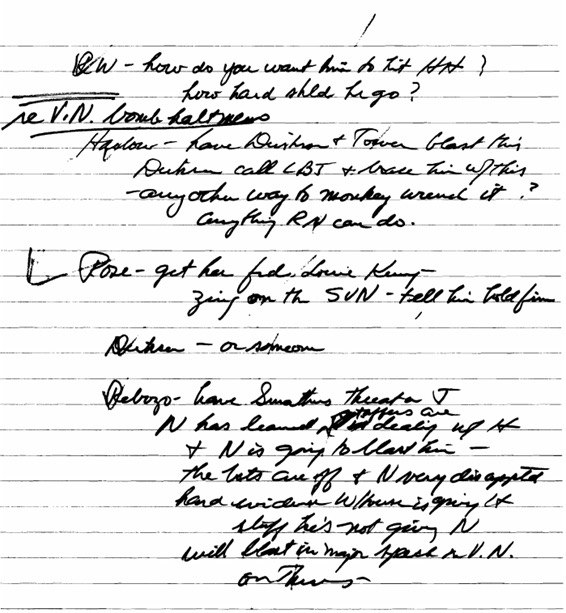 BW – how do you want him to hit HH ?
how hard shld he go?
re V.N. bomb halt news
Harlow – have Dirksen & Tower blast this
Dirksen call LBJ & brace him w/ this
– any other way to monkey wrench it ?
anything RN can do.
Rose – get her frd. Louie Kung –
going on the SVN – tell him hold firm
Dirksen – or someone
Rebozo – have Smathers threaten J
N has learned staffers are dealing w/ H
& N is going to blast him –
the bets are off & N very disappted
hard evidence W House is giving H
stuff he's not giving N
will blast in major speech on V.N.
on Thurs –